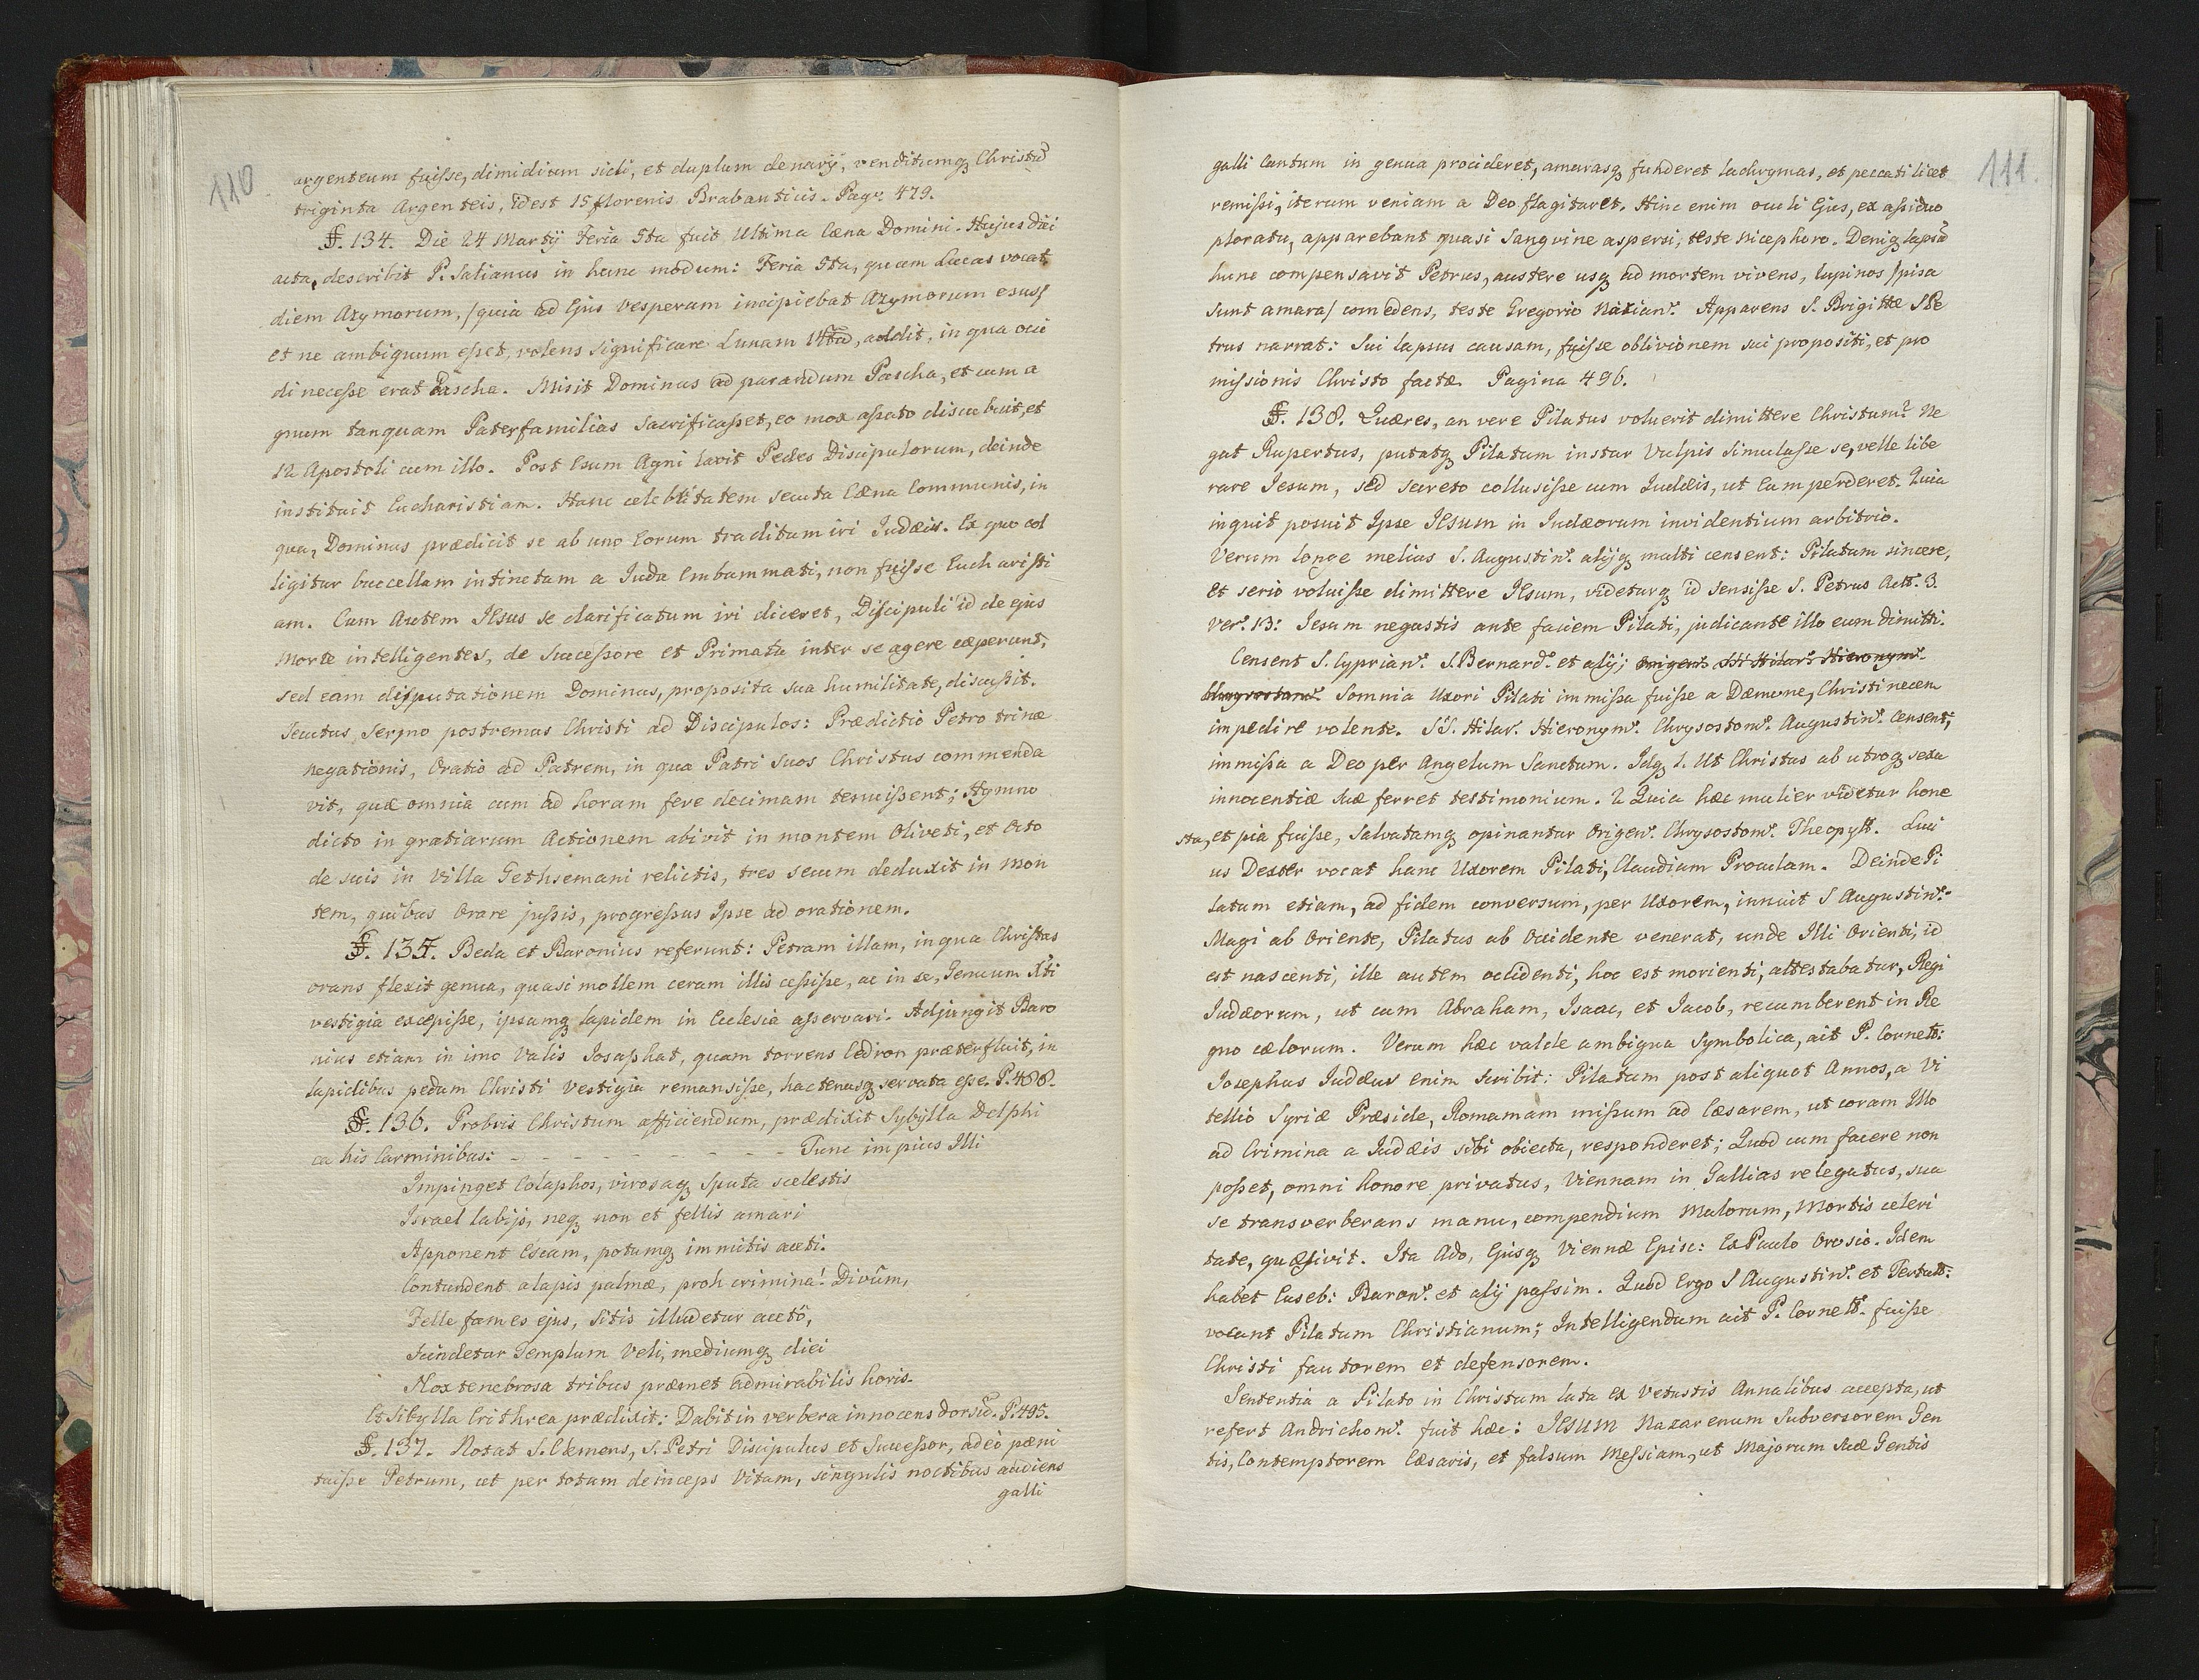 110
argenteum fuisse, dimidium sicli, et duplum denarij, venditumq Christũ
triginta Argenteis, idest 15 florenis Brabanticis. Pag: 479.
§. 134. Die 24 Martij Feria 5ta fuit Ultima Cæna Domini. Hujus diei
acta, describit P. Salianus in hunc modum: Feria 5ta, quam Lucas vocat
diem Azymorum, /quia ad Ejus Vesperam incipiebat Azymorum esus/
et ne ambiguum esset, volens significare Lunam 14tã, addit, in qua occi
di necesse erat Pascha. Misit Dominus ad parandum Pascha, et cum a
gnum tanquam Paterfamilias Sacrificasset, eo mox assato discubuit, et
12 Apostoli cum illo. Post Esum Agni lavit Pedes Discipulorum, deinde
instituit Eucharistiam. Hanc celebritatem secuta Cæna Communis, in
qua, Dominus prædicit se ab uno Eorum traditum iri Judæis. Ex quo col
ligitur buccellam intinctam a Juda Embammati, non fuisse Eucharisti
am. Cum Autem JEsus se clarificatum iri diceret, Discipuli id de ejus
Morte intelligentes, de Successore et Primatu inter se agere cæperunt,
sed eam disputationem Dominus, proposita sua humilitate, discussit.
Secutus Sermo postremus Christi ad Discipulos: Prædictio Petro trinæ
negationis, Oratio ad Patrem, in qua Patri Suos Christus commenda
vit, quæ omnia cum ad horam fere decimam tenuissent; Hymno
dicto in gratiarum Actionem abivit in montem Oliveti, et Octo
de suis in Villa Gethsemani relictis, tres secum deduxit in Mon
tem, quibus Orare jussis, progressus Ipse ad orationem.
§. 135. Beda et Baronius referunt: Petram illam, in qua Christus
orans flexit genua, quasi mollem ceram illis cessisse, ac in se, Genuum Xti
vestigia excepisse, ipsamq lapidem in Ecclesia asservari. Adjungit Baro
nius etiam in imo Valis Josaphat, quam torrens Cedron præterfluit, in
lapidibus pedum Christi Vestigia remansisse, hactenusq servata esse. P. 488.
§. 136. Probris Christum afficiendum, prædixit Sybilla Delphi
ca his Carminibus: - - - - - - - - - - Tunc impius Illi
Impinget Colaphos, virosaq Sputa scelestis
Israel labijs, neq non et fellis amari
Apponent Escam, potumq immitis aceti.
Contundent alapis palmæ, proh crimina! Divûm,
Felle fames ejus, Sitis illudetur acetô,
Scindetur Templum Veli, mediumq diei
Nox tenebrosa tribus præmet admirabilis horis.
Et Sibylla Erithrea prædixit: Dabit in verbera innocens dorsũ. P. 495.
§. 137. Notat S. Clemens, S. Petri Discipulus et Successor, adeò pæni
tuisse Petrum, ut per totum deinceps Vitam, singulis noctibus audiens
galli
111.
galli Cantum in genua procideret, amarasq funderet lachrymas, et peccati licet
remissi, iterum veniam a Deo flagitaret. Hinc enim oculi Ejus, ex assiduo
ploratu, apparebant quasi Sanguine aspersi, teste Nicephoro. Deniq lapsũ
hunc compensavit Petrus, austere usq ad mortem vivens, lupinos /pisa
sunt amara/ comedens, teste Gregorio Nazian: Apparens S. Brigittæ S Pe
trus narrat: Sui lapsus causam, fuisse oblivionem sui propositi, et pro
missionis Christo factæ. Pagina 496.
§. 138. Quæres, an vere Pilatus voluerit dimittere Christum? Ne
gat Rupertus, putatq Pilatum instar Vulpis Simulasse se, velle libe
rare Jesum, sed secreto collusisse cum Judæis, ut Eam perderet. Quia
inquit posuit Ipse JEsum in Judæorum invidentium arbitrio.
Verum longe melius S. Augustin: alijq multi censent: Pilatum sincere,
et serio voluisse dimittere JEsum, videturq id sensisse S. Petrus Act: 3.
Ver: 13: Jesum negastis ante faciem Pilati, judicante illo eum dimitti.
Censent S. Cyprian: S. Bernard: et alij; Origen: SS Hilar: Hieronym:
Chrysostom: Somnia Uxori Pilati immissa fuisse a Dæmone, Christi necem
impedire volente. SS. Hilar: Hieronym: Chrysostom: Augustin: Censent,
immissa a Deo per Angelum Sanctum. Idq 1. Ut Christus ab utroq sexu
innocentiæ suæ ferret testimonium. 2 Quia hæc mulier videtur hone
sta, et pia fuisse, Salvatamq opinantur Origen: Chrysostom: Theopyl: Luci
us Dexter vocat hanc Uxorem Pilati, Claudiam Proculam. Deinde Pi
latum etiam, ad fidem conversum, per Uxorem, innuit S Augustin:
Magi ab Oriente, Pilatus ab Occidente venerat, unde Illi Orienti, id
est nascenti, ille autem occidenti, hoc est morienti, attestabatur, Regi
Judæorum, ut cum Abraham, Isaac, et Jacob, recumberent in Re
gno cælorum. Verum hæc valde ambigua Symbolica, ait P. Cornell:
Josephus Judæus enim scribit: Pilatum post aliquot Annos, a Vi
tellio Syriæ Præside, Romamam missum ad Cæsarem, ut coram Illo
ad Crimina a Judæis sibi obiecta, responderet; Quod cum facere non
posset, omni honore privatus, Viennam in Gallias relegatus, sua
se transverberans manu, compendium Malorum, Mortis celeri
tate, quæsivit. Ita Ado, Ejusq Viennæ Episc: Ex Paulo Orosio. Idem
habet Euseb: Baron: et alij passim. Quod Ergo S Augustin: et Tertull:
vocant Pilatum Christianum; Intelligendum ait P. Cornell: fuisse
Christi fautorem et defensorem.
Sententia a Pilato in Christum lata ex Vetustis Annalibus accepta, ut
refert Andrichom: fuit hæc: JEsum Nazarenum Subversorem Gen
tis, Contemptorem Cæsaris, et falsum Messiam, ut Majorum suæ Gentis